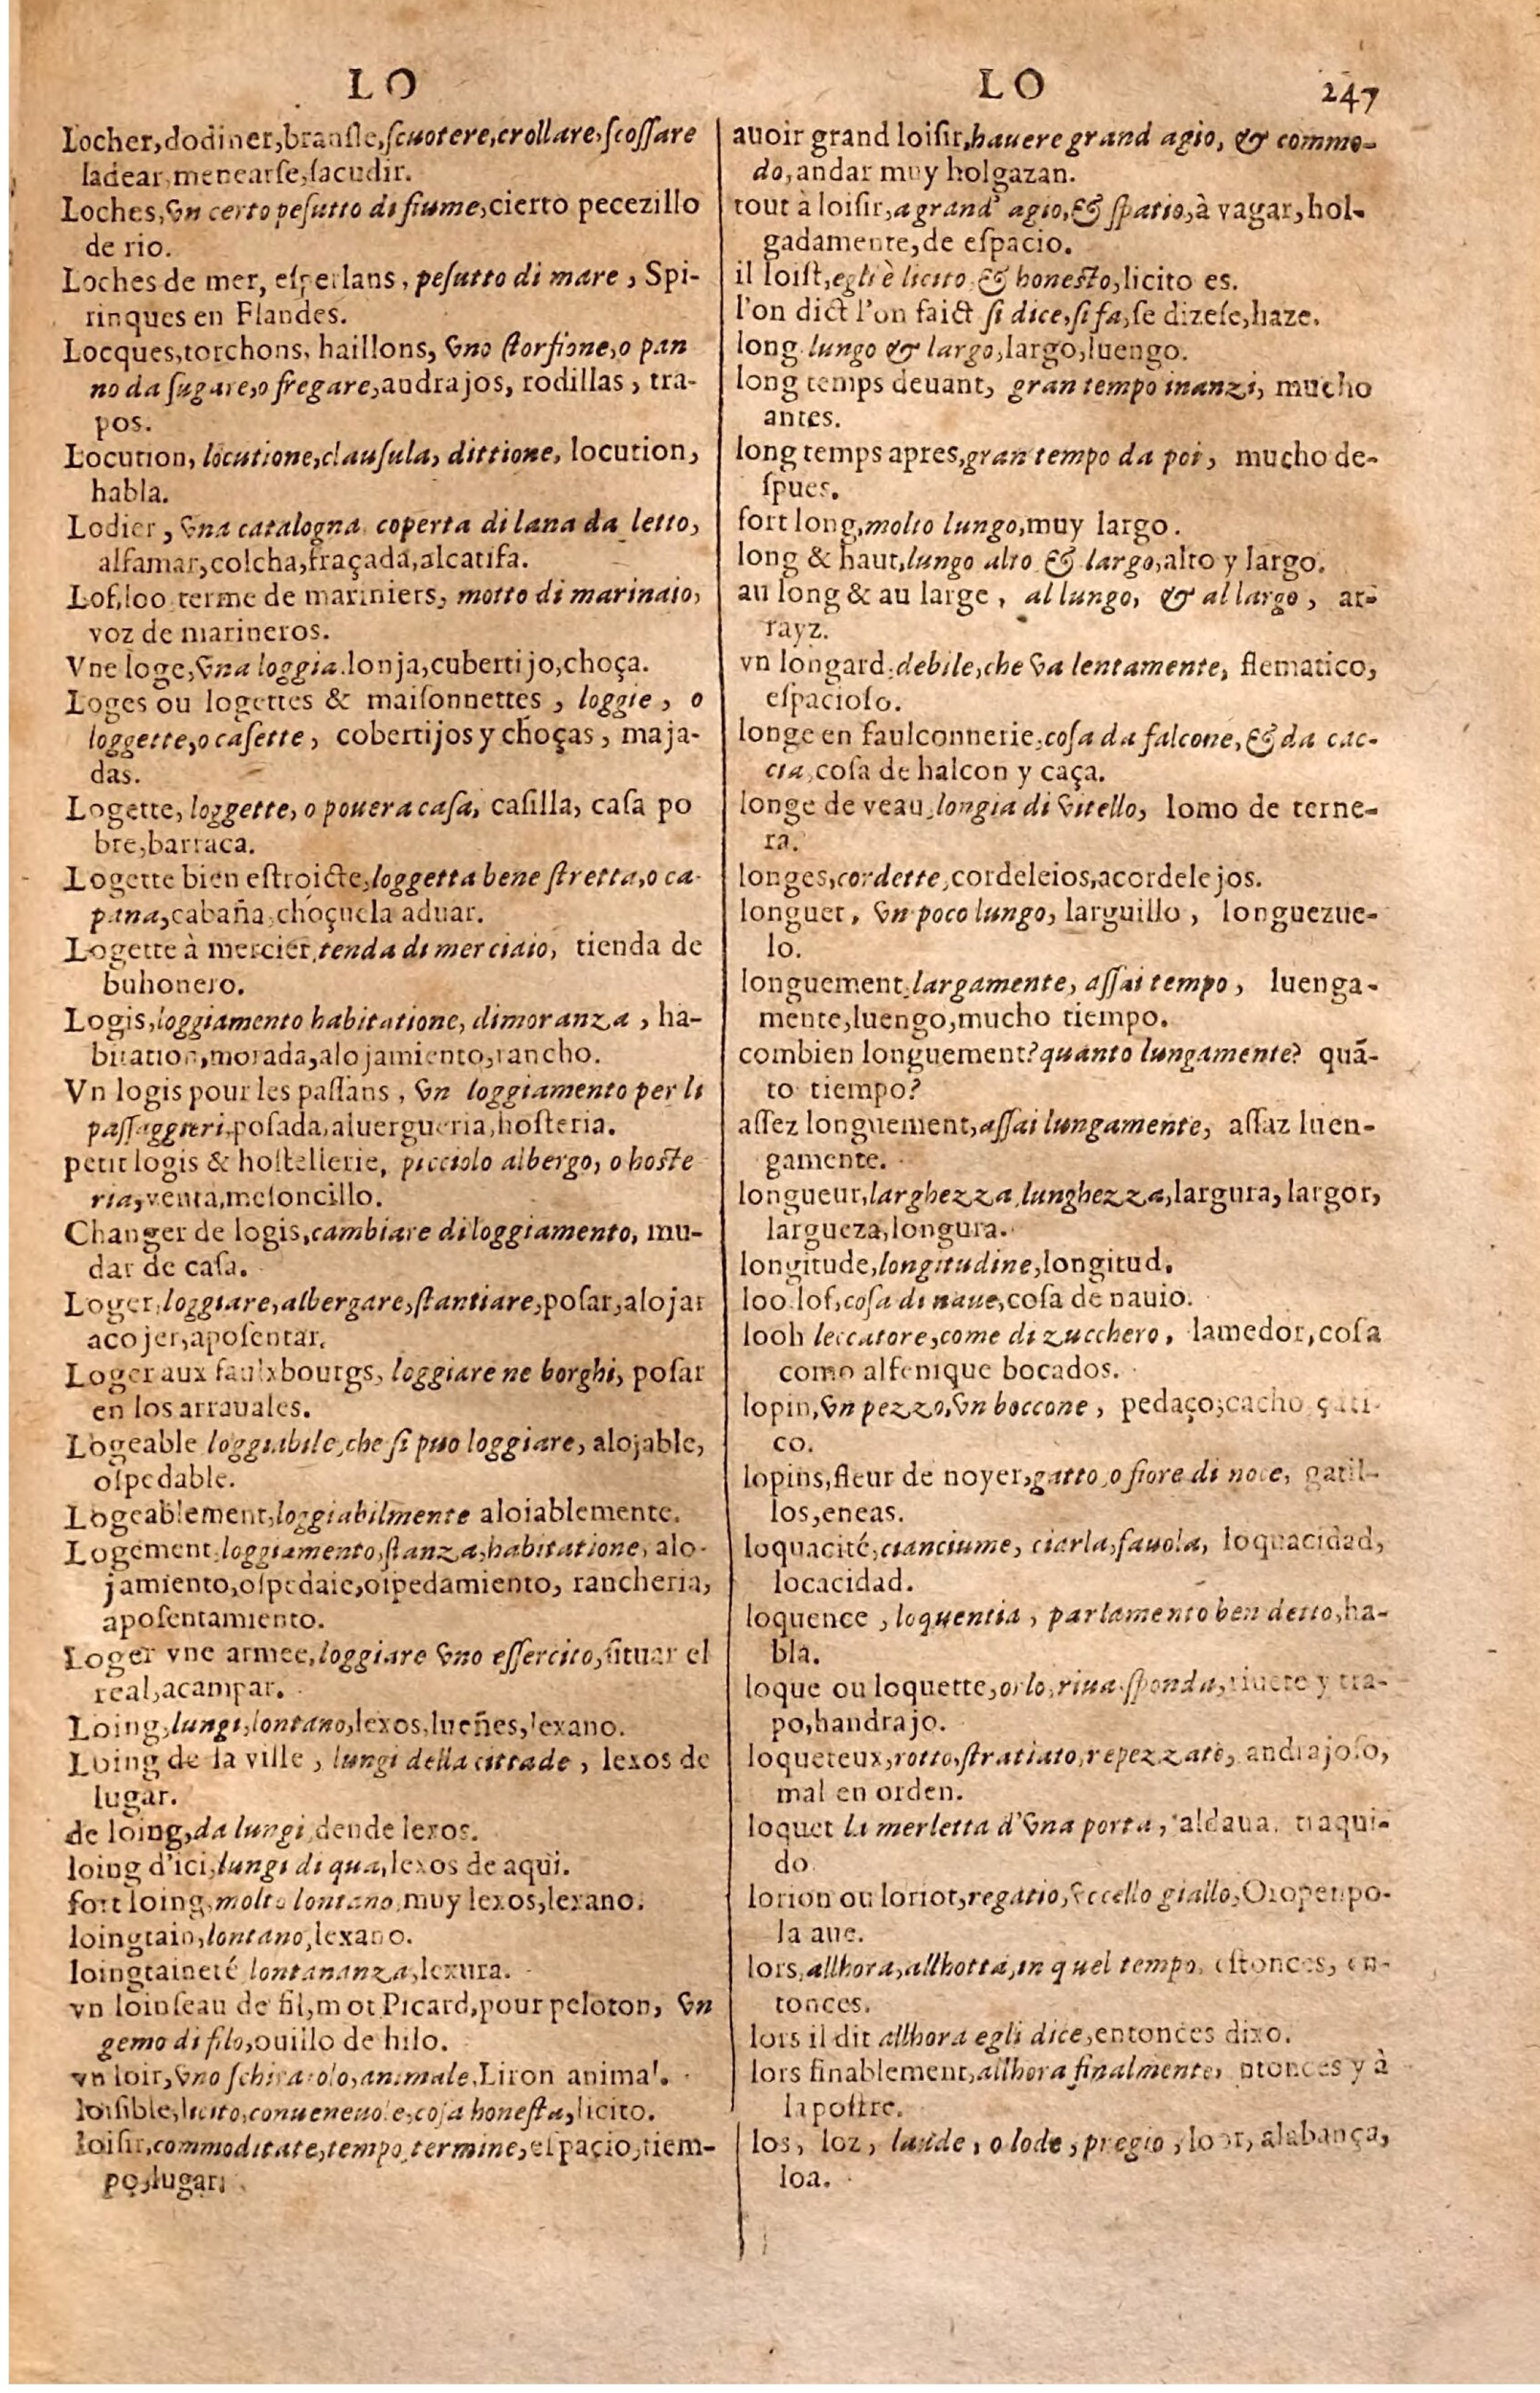 LO
Locher,dodiner,bransle,ſcuotere,crollare,ſcoſſare
ladear,menearſe,ſacudir.
Loches,vn certo peſutto di fiume,cierto pecezillo
de rio.
Loches de mer, eſperlans, peſutto di mare, Spi-
rinques en Flandes.
Locques,torchons, haillons, vno ſtorfione,o pan
no da ſugare,o fregare,audrajos, rodillas, tra-
pos.
Locution, locutione,clauſula, dittione, locution,
habla.
Lodier, vna catalogna coperta di lana da letto,
alfamar,colcha,fraçada,alcatifa.
Lof,loo terme de mariniers, motto di marinaio,
voz de marineros.
Vne loge,vna loggia.lonja,cubertijo,choça.
Loges ou logettes & maiſonnettes, loggie, o
loggette,o caſette, cobertijos y choças, maja-
das.
Logette, loggette, o pouera caſa, caſilla, caſa po
bre,barraca.
Logette bien eſtroicte,loggetta bene ſtretta,o ca-
pana,cabaña,choçuela aduar.
Logette à mercier,tenda di merciaio, tienda de
buhonero.
Logis,loggiamento habitatione, dimoranza, ha-
bitation,morada,alojamiento,rancho.
Vn logis pour les paſſans, vn loggiamento per li
paſſaggieri,poſada,aluergueria,hoſteria.
petit logis & hoſtellerie, picciolo albergo, o hoſte
ria,venta,meſoncillo.
Changer de logis,cambiare di loggiamento, mu-
dar de caſa.
Loger,loggiare,albergare,ſtantiare,poſar,alojar
acojer,apoſentar.
Loger aux faulxbourgs, loggiare ne borghi, poſar
en los arrauales.
Logeable loggiabile,che ſi puo loggiare, alojable,
oſpedable.
Logeablement,loggiabilmente aloiablemente.
Logement,loggiamento,ſtanza,habitatione, alo-
jamiento,oſpedaie,oſpedamiento, rancheria,
apoſentamiento.
Loger vne armee,loggiare vno eſſercito,ſituar el
real,acampar.
Loing,lungi,lontano,lexos,lueñes,lexano.
Loing de la ville, lungi della cittade, lexos de
lugar.
de loing,da lungi,dende lexos.
loing d'ici,lungi di qua,lexos de aqui.
fort loing,molto lontano,muy lexos,lexano.
loingtain,lontano,lexano.
loingtaineté lontananza,lexura.
vn loinſeau de fil,mot Picard,pour peloton, vn
gemo di filo,ouillo de hilo.
vn loir,vno ſchiraiolo,animale,Liron animal.
loiſible,licito,conueneuole,coſa honeſta,licito.
loiſir,commoditate,tempo,termine,eſpaçio,tiem-
po,lugar.
LO 247
auoir grand loiſir,hauere grand agio, & commo-
do,andar muy holgazan.
tout à loiſir,a grand' agio,& ſpatio,à vagar,hol-
gadamente,de eſpacio.
il loiſt,egli è licito & honeſto,licito es.
l'on dict l'on faict ſi dice,ſi fa,ſe dizeſe,haze.
long lungo & largo,largo,luengo.
long temps deuant, gran tempo inanzi, mucho
antes.
long temps apres,gran tempo da poi, mucho de-
ſpues.
fort long,molto lungo,muy largo.
long & haut,lungo alto & largo,alto y largo.
au long & au large, al lungo, & al largo, ar-
rayz.
vn longard,debile,che va lentamente, flematico,
eſpacioſo.
longe en faulconnerie,coſa da falcone,& da cac-
cia,coſa de halcon y caça.
longe de veau,longia di vitello, lomo de terne-
ra.
longes,cordette,cordeleios,acordelejos.
longuet, vn poco lungo, larguillo, longuezue-
lo.
longuement,largamente, aſſai tempo, luenga-
mente,luengo,mucho tiempo.
combien longuement?quanto lungamente? quã-
to tiempo?
aſſez longuement,aſſai lungamente, aſſaz luen-
gamente.
longueur,larghezza,lunghezza,largura,largor,
largueza,longura.
longitude,longitudine,longitud.
loo lof,coſa di naue,coſa de nauio.
looh leccatore,come di zucchero, lamedor,coſa
como alfenique bocados.
lopin,vn pezzo,vn boccone, pedaço,cacho çati-
co.
lopins,fleur de noyer,gatto,o fiore di noce, gatil-
los,eneas.
loquacité,cianciume, ciarla,fauola, loquacidad,
locacidad.
loquence, loquentia, parlamento ben detto,ha-
bla.
loque ou loquette,orlo,riua.ſponda,riuete y tra-
po,handrajo.
loqueteux,rotto,ſtratiato,repezzato, andrajoſo,
mal en orden.
loquet la merletta d'vna porta, aldaua. traqui-
do
lorion ou loriot,regatio,vccello giallo,Oropenpo-
la aue.
lors,allhora,allhotta,in quel tempo, eſtonces, en-
tonces.
lors il dit allhora egli dice,entonces dixo.
lors finablement,allhora finalmente, ntonces y à
la poſtre.
los, loz, laude, o lode, pregio, loor, alabança,
loa.